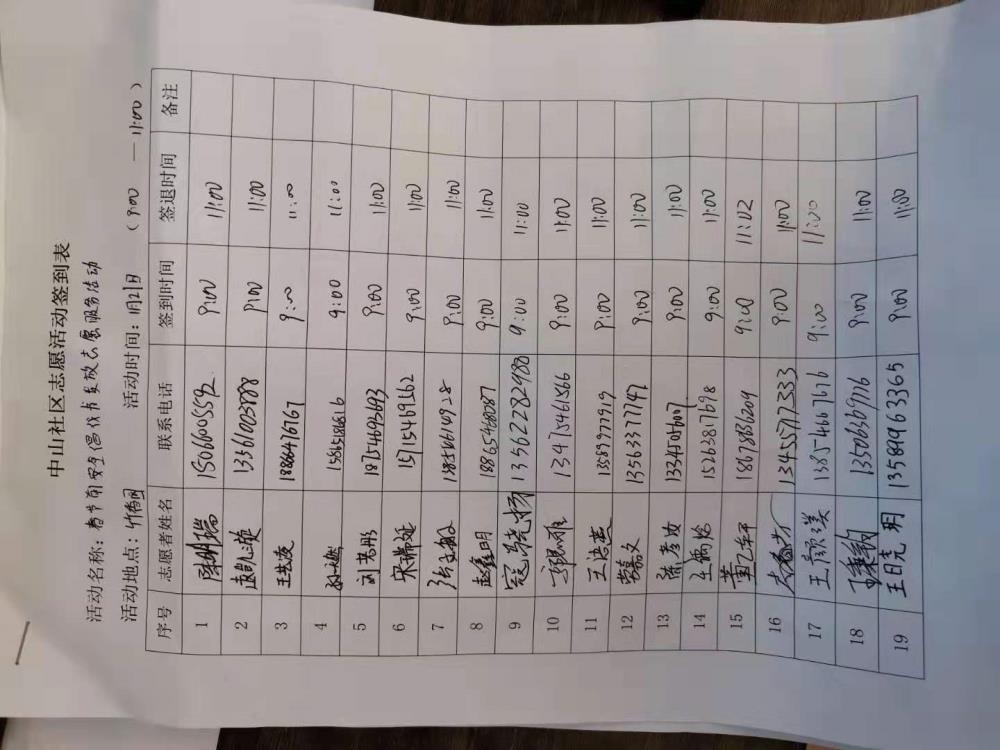 中山社区志愿活动签到表
活动名称：春节前安全倡议书发放志愿服务活动
活动地点：竹香园 活动时间：1月21日 （9:00 — 11:00）
序号 志愿者姓名 联系电话 签到时间 签退时间 备注
1 15066005592 9:00 11:00
2 13361003788 9:00 11:00
3 18864767167 9:00 11:00
4 15851586816 9:00 11:00
5 18754693693 9:00 11:00
6 宋瑞延 15715469562 9:00 11:00
7 18506149928 9:00 11:00
8 赵鑫明 18865468087 9:00 11:00
9 寇晓扬 13562282980 9:00 11:00
10 13475461866 9:00 11:00
11 王洁莲 13589977919 9:00 11:00
12 13563377747 9:00 11:00
13 陈孝妆 13345017607 9:00 11:00
14 15263817698 9:00 11:00
15 18678386209 9:00 11:02
16 13455773333 9:00 11:00
17 王颜溪 13854667676 9:00 11:00
18 13506369776 9:00 11:00
19 王晓明 13589963365 9:00 11:00